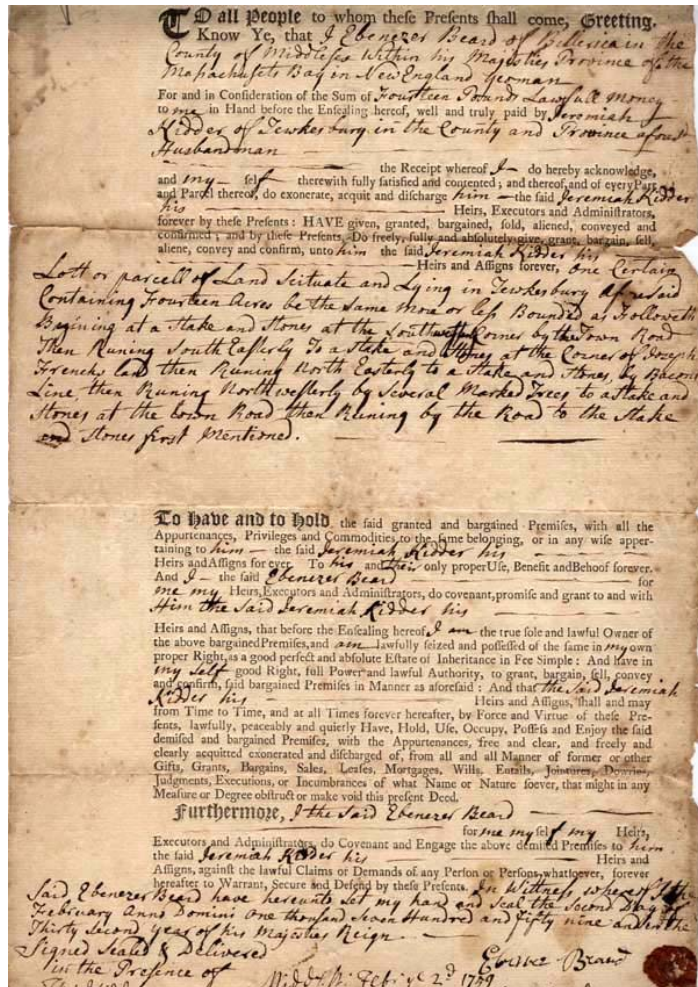 TO all People to whom these Presents shall come, Greeting.
Know Ye, that I Ebenezer Beard of Billerica in the
County of Middlesex Within his Majesties Province of the
Massachusets Bay in New England Yeoman
For and in Consideration of the Sum of Fourteen Pounds Lawfull money
to me in Hand before the Ensealing hereof, well and truly paid by Jeremiah
Kidder of Tewkesbury in the County and Province afores.d
Husbandman
the Receipt whereof I do hereby acknowledge,
and my self therewith fully satisfied and contented; and thereof, and of every Part
and Parcel thereof, do exonerate, acquit and discharge him the said Jeremiah Kidder
his Heirs, Executors and Administrators,
forever by these Presents: HAVE given, granted, bargained, sold, aliened, conveyed and
confirmed; and by these Presents, Do freely, fully and absolutely give, grant, bargain, sell,
aliene, convey and confirm, unto him the said Jeremiah Kidder his
Heirs and Assigns forever, One Certain
Lott or parcell of Land Scituate and Lying in Tewkesbury Aforesaid
Containing Fourteen Acres be the same more or less Bounded as Followeth
Begining at a Stake and Stones at the Corner by the Town Road
Then Runing South Easterly To a Stake and Stones at the Corner of Joseph
Frenchs land then Runing North Easterly to a Stake and Stones, by Bacons
Line, then Runing North westerly by Several Marked Trees to a Stake and
Stones at the town Road then Runing by the Road to the Stake
and Stones first Mentioned.
To Have and to Hold the said granted and bargained Premises, with all the
Appurtenances, Privileges and Commodities to the same belonging, or in any wise apper-
taining to him the said Jeremiah Kidder his
Heirs and Assigns for ever. To his and their only proper Use, Benefit and Behoof forever.
And I the said Ebenezer Beard for
me my Heirs, Executors and Administrators, do covenant, promise and grant to and with
Him the Said Jeremiah Kidder his
Heirs and Assigns, that before the Ensealing hereof I am the true sole and lawful Owner of
the above bargained Premises, and am lawfully seized and possessed of the same in my own
proper Right, as a good perfect and absolute Estate of Inheritance in Fee Simple: And have in
my self good Right, full Power and lawful Authority, to grant, bargain, sell, convey
and confirm, said bargained Premises in Manner as aforesaid: And that the Said Jeremiah
Kidder his Heirs and Assigns, shall and may
from Time to Time, and at all Times forever hereafter, by Force and Virtue of these Pre-
sents, lawfully, peaceably and quietly Have, Hold, Use, Occupy, Possess and Enjoy the said
demised and bargained Premises, with the Appurtenances, free and clear, and freely and
clearly acquitted exonerated and discharged of, from all and all Manner of former or other
Gifts, Grants, Bargains, Sales, Leases, Mortgages, Wills, Entails, Jointures, Dowries,
Judgments, Executions, or Incumbrances of what Name or Nature soever, that might in any
Measure or Degree obstruct or make void this present Deed.
Furthermore, I the Said Ebenezer Beard
for me my self my Heirs,
Executors and Administrators, do Covenant and Engage the above demised Premises to him
the said Jeremiah Kidder his Heirs and
Assigns, against the lawful Claims or Demands of any Person or Persons whatsoever, forever
hereafter to Warrant, Secure and Defend by these Presents. In Wittness whereof I the
Said Ebenezer Beard have hereunto Set my hand and Seal the Second Day of
February Anno Domini One thousand Seven Hundred and Fifty nine and in the
Thirty Second year of his Majesties Reign.
Signed Sealed & Delivered
in the Presence of
Ebenezer Beard
Middx Ss. Feb ye 2d 1759